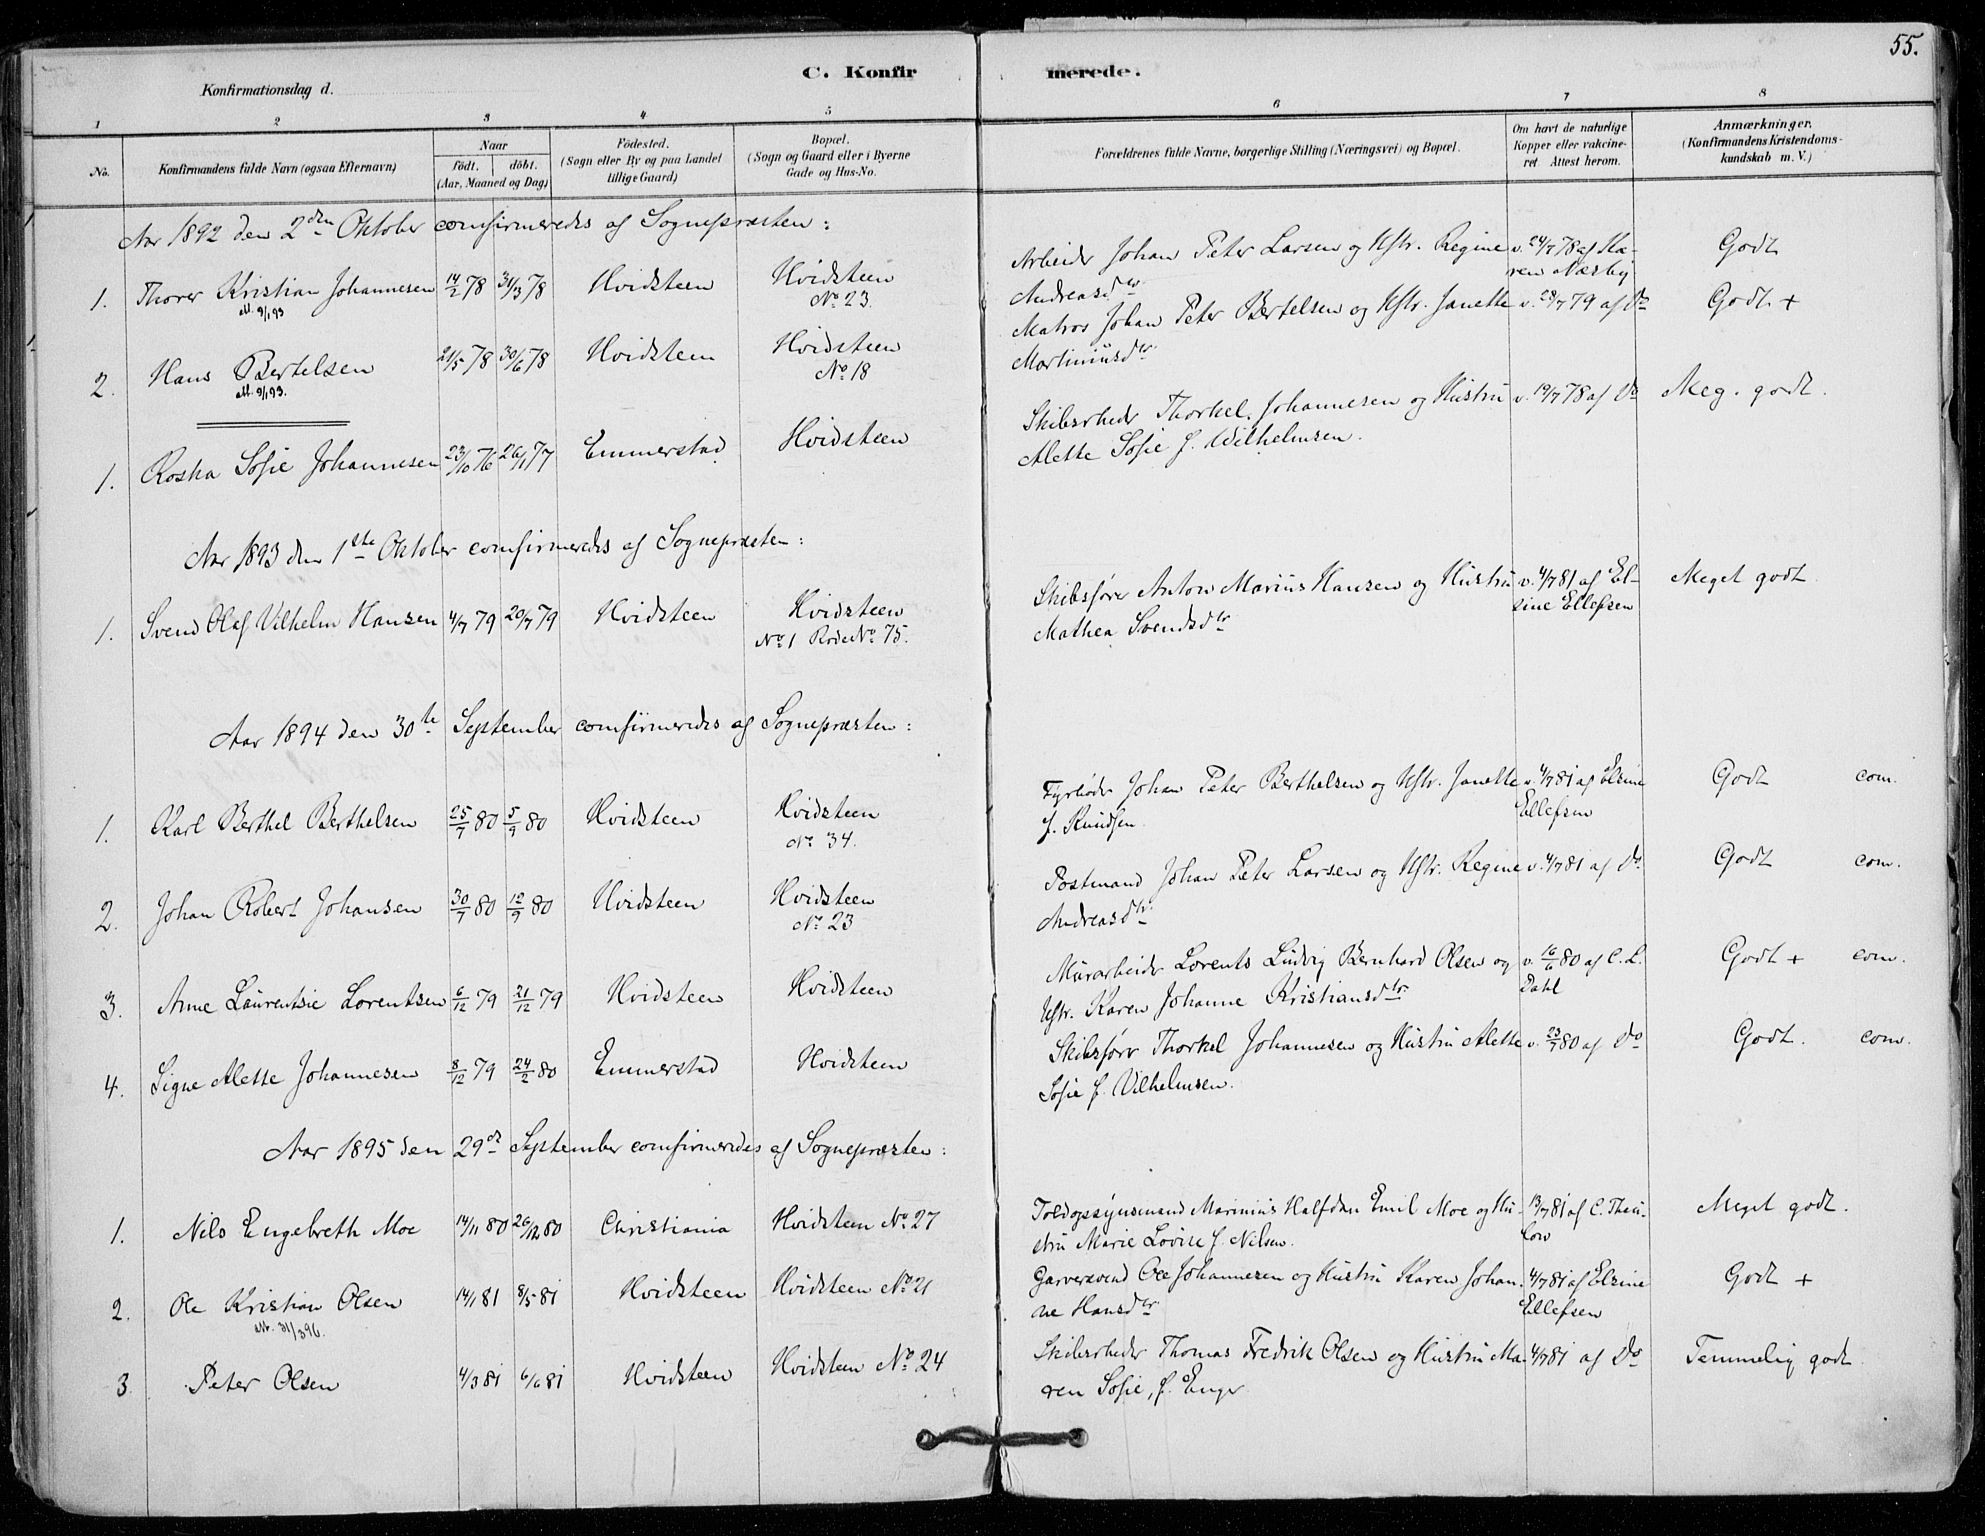 55.
C. Konfirmerede.
Konfirmationsdag d.
1 2 3 4 5 6 7 8
No. Konfirmandens fulde Navn (ogsaa Efternavn) Naar født. døbt. (Aar, Maaned og Dag) Födested. (Sogn eller By og paa Landet tillige Gaard) Bopæl. (Sogn og Gaard eller i Byerne Gade og Hus-No. Forældrenes fulde Navne, borgerlige Stilling (Næringsvei) og Bopæl. Om havt de naturlige Kopper eller vakcineret Attest herom. Anmærkninger. (Konfirmandens Kristendomskundskab m. V.)
Aar 1892 den 2den Oktober comfirmeredes af Sognepræsten:
1. Thorer Kristian Johannesen 14/2 78 31/3 78 Hvidsteen Hvidsteen No. 23. Arbeider Johan Peter Larsen og Hstr. Regine Andreasdtr v. 24/7 78 af Karen Næsby Godt
att. 9/1 93
2. Hans Bertelsen 21/5 78 30/6 78 Hvidsteen Hvidsteen No. 18 Matros Johan Peter Bertelsen og Hstr. Janette Martiniusdtr v. 28/7 79 af Do Godt +
att. 9/1 93.
1. Rosha Sofie Johannesen 23/10 76 26/1 77 Emmerstad Hvidsteen Skibsrheder Thorkel Johannesen og Hustru Alette Sofie f. Wilhelmsen. v. 19/7 78 af Do Meg. godt.
Aar 1893 den 1ste Oktober comfirmeredes af Sognepræsten:
1. Svend Olaf Vilhelm Hansen 4/7 79 20/7 79 Hvidsteen Hvidsteen No. 1 Rode No. 75. Skibsfører Anton Marius Hansen og Hustru Mathea Svendsdtr v. 4/7 81 af Elsine Ellefsen Meget godt
Aar 1894 den 30te September comfirmeredes af Sognepræsten:
1. Karl Berthel Berthelsen 25/7 80 5/9 80 Hvidsteen Hvidsteen No. 34. Fyrbøder Johan Peter Berthelsen og Hstr. Janette f. Knudsen v. 4/7 81 af Elsine Ellefsen Godt com.
2. Johan Robert Johansen 30/7 80 12/9 80 Hvidsteen Hvidsteen No. 23 Postmand Johan Peter Larsen og Hstr. Regine Andreasdtr. v. 4/7 81 af Do. Godt com.
3. Anne Laurentsie Lorentsen 6/12 79 21/12 79 Hvidsteen Hvidsteen Murarbeider Lorents Ludvig Bernhard Olsen og Hstr. Karen Johanne Kristiansdtr v. 16/6 80 af C. L. Dahl Godt + com.
4. Signe Alette Johannesen 8/12 79 24/2 80 Emmerstad Hvidsteen Skibsfører Thorkel Johannesen og Hustru Alette Sofie f. Vilhelmsen. v. 23/7 80 af Do Godt. com.
Aar 1895 den 29de September comfirmeredes af Sognepræsten:
1. Nils Engebreth Moe 14/11 80 26/12 80 Christiania Hvidsteen No. 27 Toldopsynsmand Marinius Halfdan Emil Moe og Hustru Marie Lovise f. Nilsen. 13/7 81 af C. Thaulow Meget godt.
2. Ole Kristian Olsen 14/1 81 8/5 81 Hvidsteen Hvidsteen No. 21 Garversvend Ole Johannesen og Hustru Karen Johanne Hansdtr 4/7 81 af Elsine Ellefsen Godt +
att. 31/3 96.
3. Peter Olsen 4/3 81 6/6 81 Hvidsteen Hvidsteen No. 24 Skibsrheder Thomas Fredrik Olsen og Hustru Maren Sofie, f. Enger 4/7 81 af Do Temmelig godt